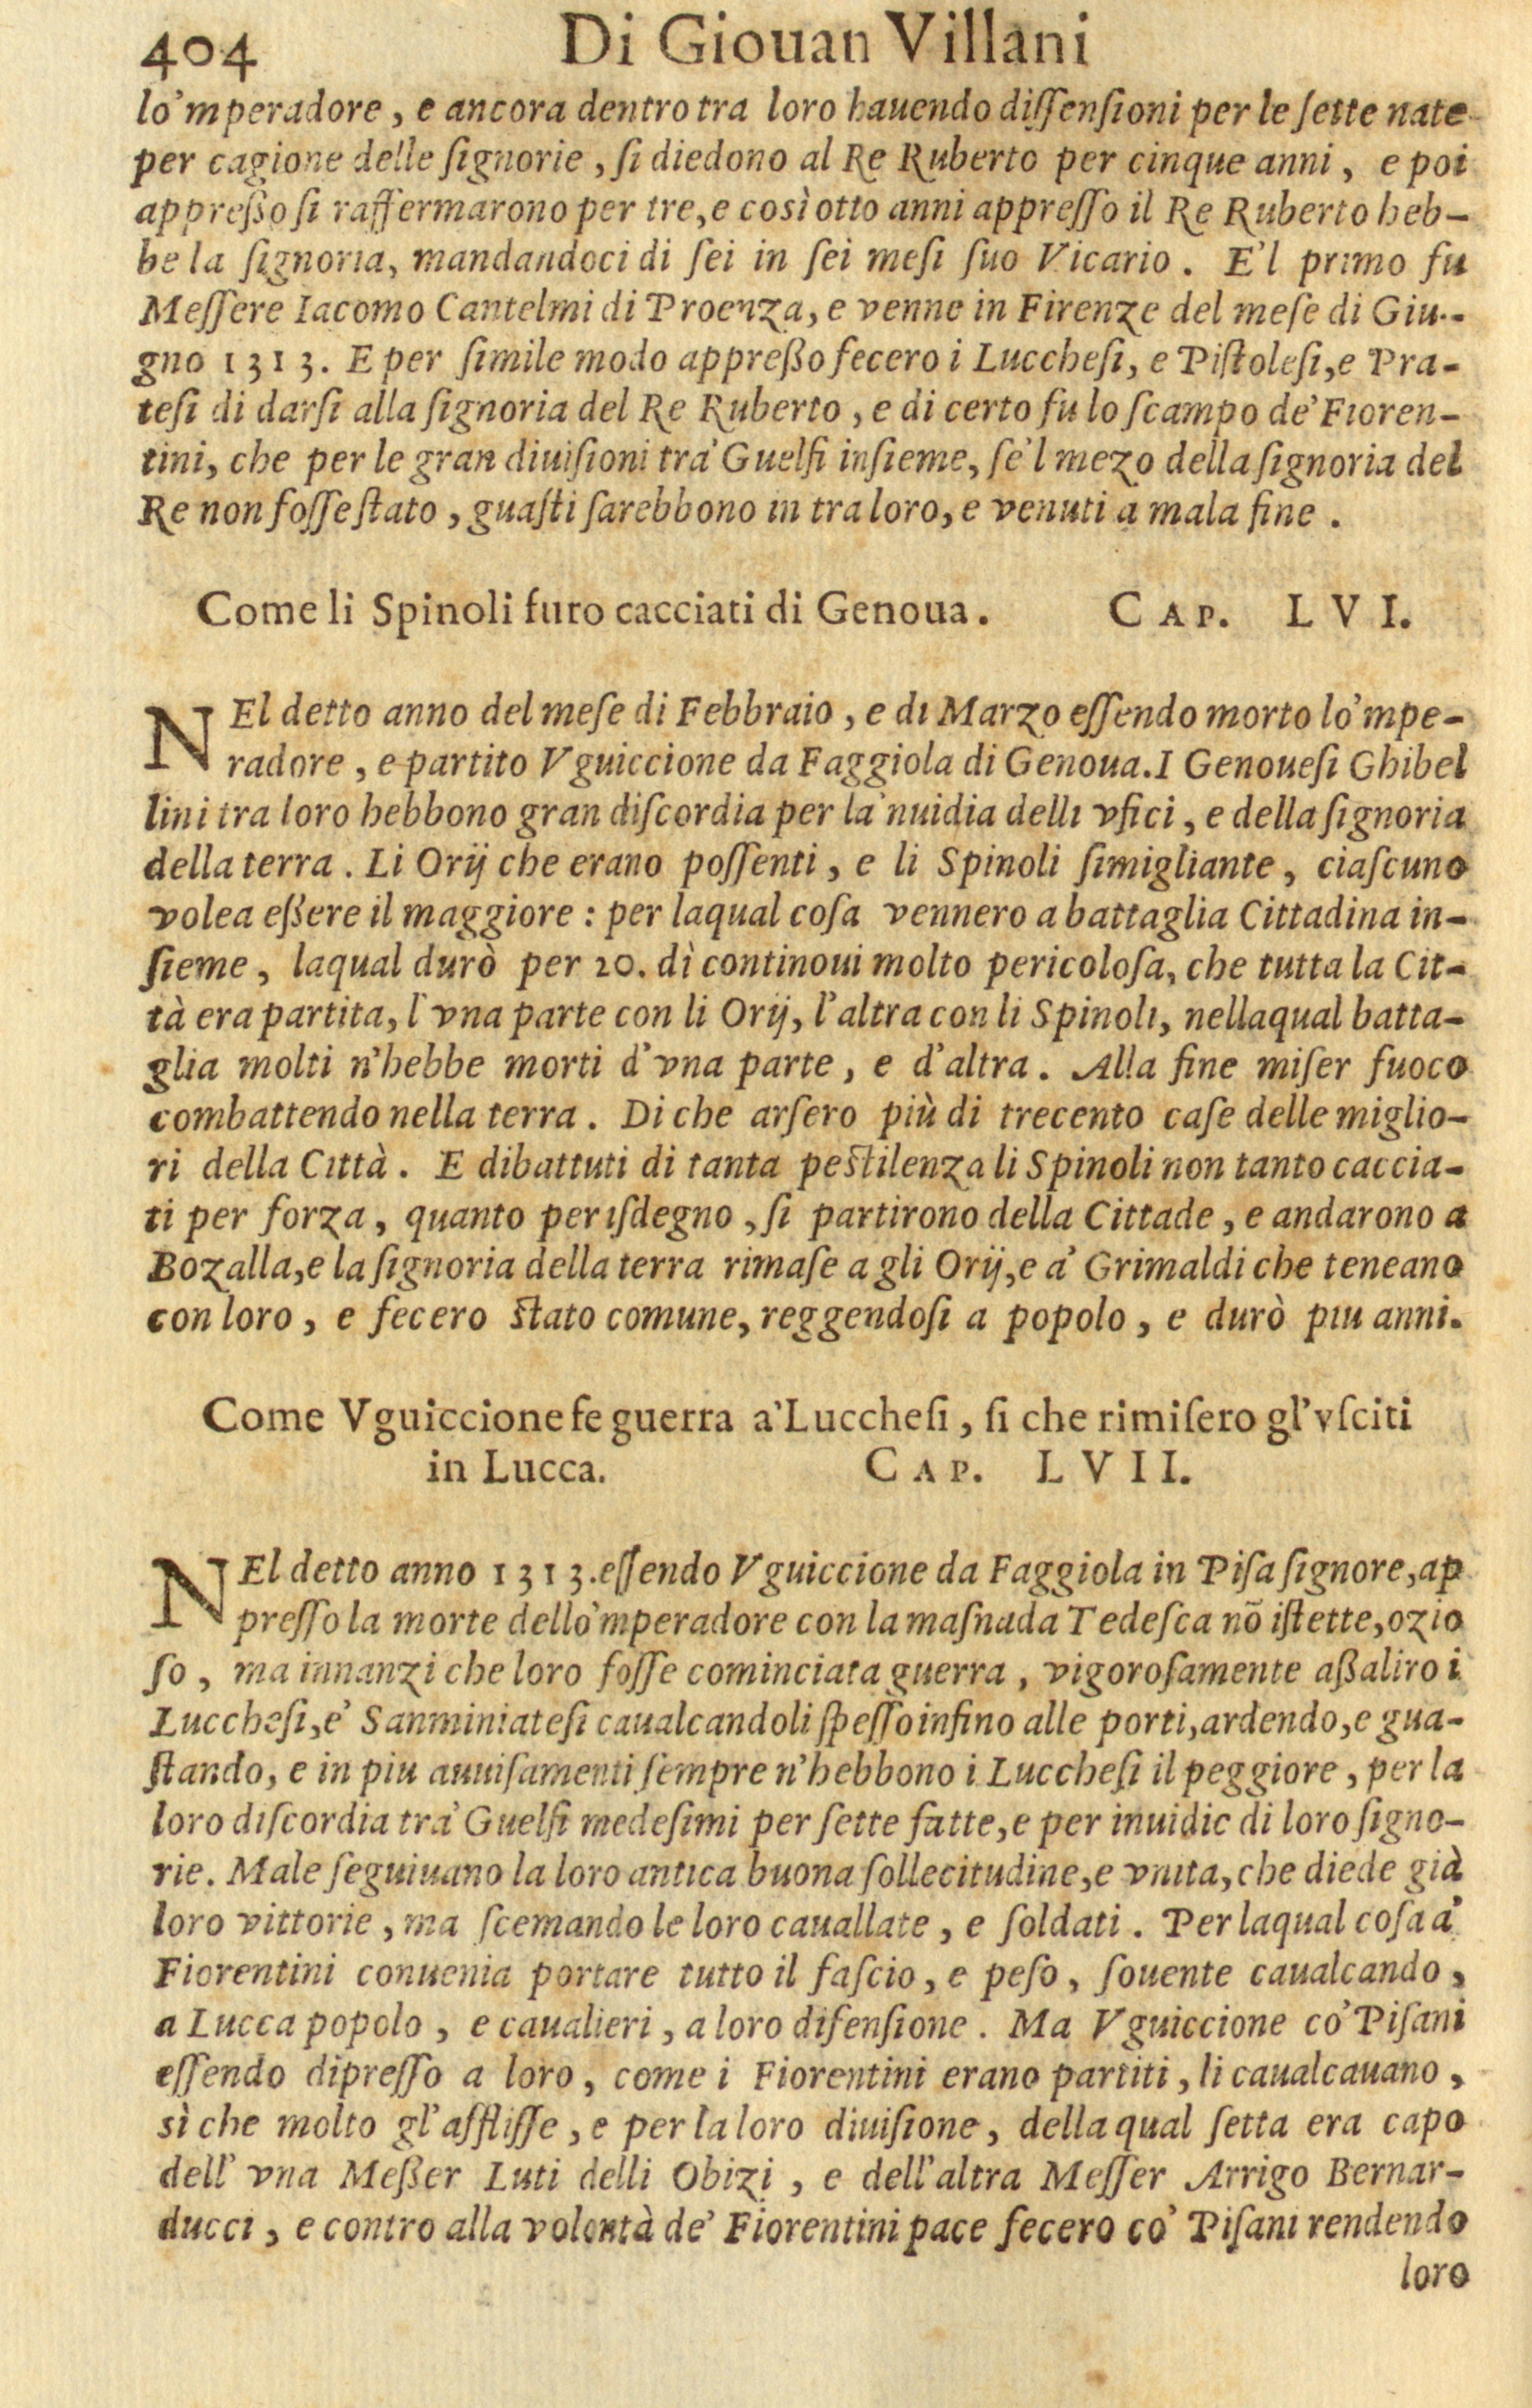 404 Di Giouan Villani
lo'mperadore, e ancora dentro tra loro hauendo diſſenſioni per le ſette nate
per cagione delle ſignorie, ſi diedono al Re Ruberto per cinque anni, e poi
appreßo ſi raffermarono per tre, e così otto anni appreſſo il Re Ruberto heb-
be la ſignoria, mandandoci di ſei in ſei meſi ſuo Vicario. E'l primo fu
Meſſere Iacomo Cantelmi di Proenza, e venne in Firenze del meſe di Giu-
gno 1313. E per ſimile modo appreßo fecero i Luccheſi, e Piſtoleſi, e Pra-
teſi di darſi alla ſignoria del Re Ruberto, e di certo fu lo ſcampo de' Fioren-
tini, che per le gran diuiſioni tra' Guelfi inſieme, ſe'l mezo della ſignoria del
Re non foſſe ſtato, guaſti ſarebbono in tra loro, e venuti a mala fine.
Come li Spinoli furo cacciati di Genoua. CAP. LVI.
NEl detto anno del meſe di Febbraio, e di Marzo eſſendo morto lo'mpe-
radore, e partito Vguiccione da Faggiola di Genoua. I Genoueſi Ghibel
lini tra loro hebbono gran diſcordia per la'nuidia delli vfici, e della ſignoria
della terra. Li Orij che erano poſſenti, e li Spinoli ſimigliante, ciaſcuno
volea eßere il maggiore: per laqual coſa vennero a battaglia Cittadina in-
ſieme, laqual durò per 20. dì continoui molto pericoloſa, che tutta la Cit-
tà era partita, l'vna parte con li Orij, l'altra con li Spinoli, nellaqual batta-
glia molti n'hebbe morti d'vna parte, e d'altra. Alla fine miſer fuoco
combattendo nella terra. Di che arſero più di trecento caſe delle miglio-
ri della Città. E dibattuti di tanta peſtilenza li Spinoli non tanto caccia-
ti per forza, quanto per iſdegno, ſi partirono della Cittade, e andarono a
Bozalla, e la ſignoria della terra rimaſe a gli Orij, e a' Grimaldi che teneano
con loro, e fecero ſtato comune, reggendoſi a popolo, e durò piu anni.
Come Vguiccione fe guerra a'Luccheſi, ſi che rimiſero gl'vſciti
in Lucca. CAP. LVII.
NEl detto anno 1313. eſſendo Vguiccione da Faggiola in Piſa ſignore, ap
preſſo la morte dello'mperadore con la maſnada Tedeſca nõ iſtette, ozio
ſo, ma innanzi che loro foſſe cominciata guerra, vigoroſamente aßaliro i
Luccheſi, e' Sanminiateſi caualcandoli ſpeſſo infino alle porti, ardendo, e gua-
ſtando, e in piu auuiſamenti ſempre n'hebbono i Luccheſi il peggiore, per la
loro diſcordia tra' Guelfi medeſimi per ſette fatte, e per inuidie di loro ſigno-
rie. Male ſeguiuano la loro antica buona ſollecitudine, e vnita, che diede già
loro vittorie, ma ſcemando le loro cauallate, e ſoldati. Per laqual coſa a'
Fiorentini conuenia portare tutto il faſcio, e peſo, ſouente caualcando,
a Lucca popolo, e caualieri, a loro difenſione. Ma Vguiccione co' Piſani
eſſendo dipreſſo a loro, come i Fiorentini erano partiti, li caualcauano,
sì che molto gl'affliſſe, e per la loro diuiſione, della qual ſetta era capo
dell'vna Meßer Luti delli Obizi, e dell'altra Meſſer Arrigo Bernar-
ducci, e contro alla volontà de' Fiorentini pace fecero co' Piſani rendendo
loro